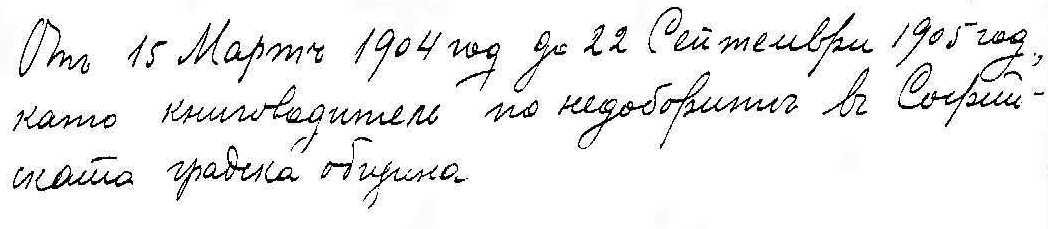 Отъ 15 Мартъ 1904 год до 22 Септември 1905 год.,
като книговодитель по недоборитѣ въ Софий-
ската градска община